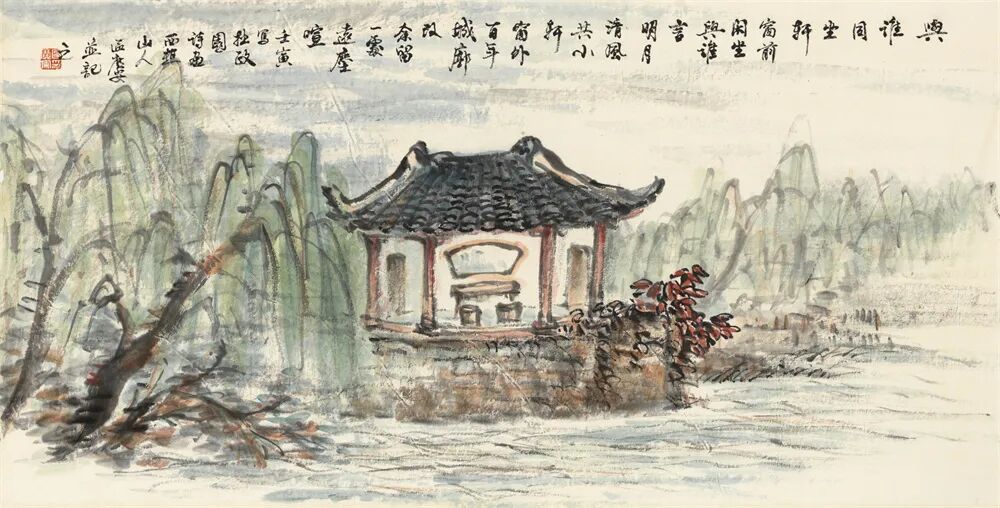 與誰同坐軒
窗前
閑坐
與誰
言
明月
清風
共小
軒
窗外
百年
城廓
改
余留
一霎
遠塵
喧
壬寅
寫
拙政
園
詩画
西樵
山人
區廣安
並記